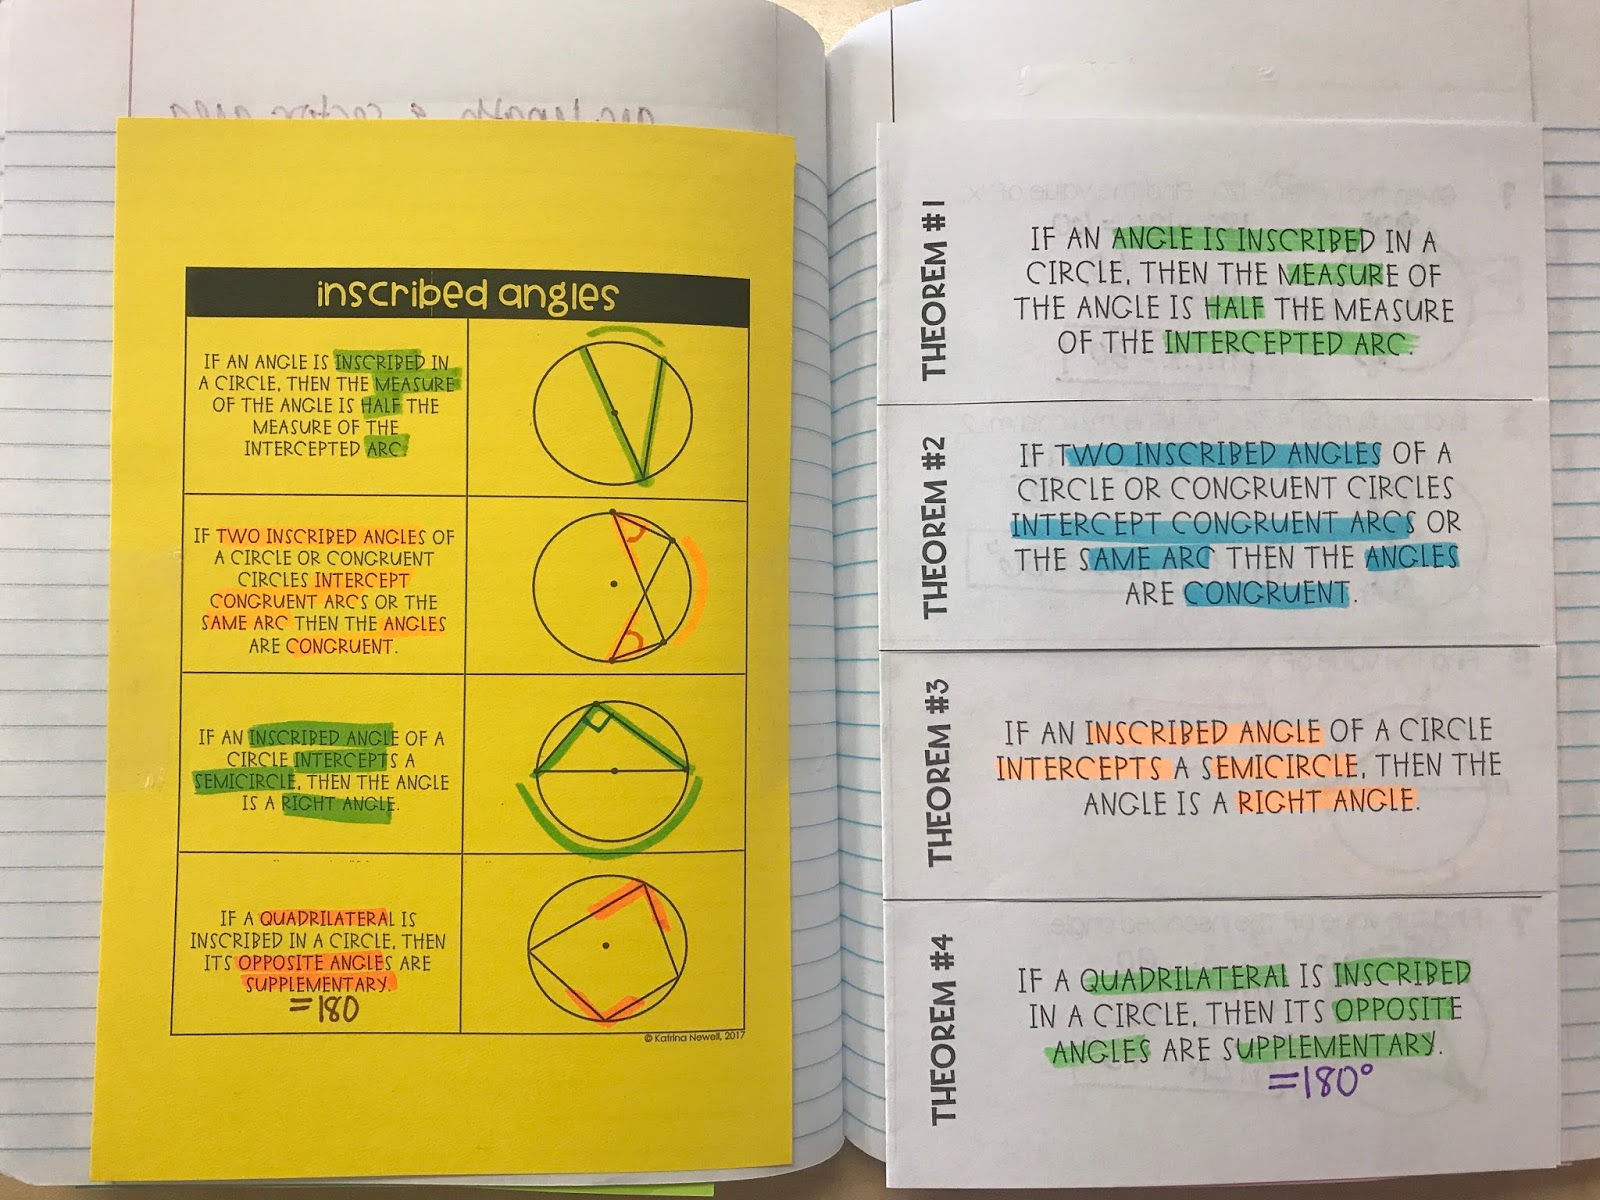 arc length & sector area
inscribed angles
IF AN ANGLE IS INSCRIBED IN
A CIRCLE, THEN THE MEASURE
OF THE ANGLE IS HALF THE
MEASURE OF THE
INTERCEPTED ARC.
IF TWO INSCRIBED ANGLES OF
A CIRCLE OR CONGRUENT
CIRCLES INTERCEPT
CONGRUENT ARCS OR THE
SAME ARC THEN THE ANGLES
ARE CONGRUENT.
IF AN INSCRIBED ANGLE OF A
CIRCLE INTERCEPTS A
SEMICIRCLE, THEN THE ANGLE
IS A RIGHT ANGLE.
IF A QUADRILATERAL IS
INSCRIBED IN A CIRCLE, THEN
ITS OPPOSITE ANGLES ARE
SUPPLEMENTARY.
=180
© Katrina Newell, 2017
THEOREM #1
IF AN ANGLE IS INSCRIBED IN A
CIRCLE, THEN THE MEASURE OF
THE ANGLE IS HALF THE MEASURE
OF THE INTERCEPTED ARC.
THEOREM #2
IF TWO INSCRIBED ANGLES OF A
CIRCLE OR CONGRUENT CIRCLES
INTERCEPT CONGRUENT ARCS OR
THE SAME ARC THEN THE ANGLES
ARE CONGRUENT.
THEOREM #3
IF AN INSCRIBED ANGLE OF A CIRCLE
INTERCEPTS A SEMICIRCLE, THEN THE
ANGLE IS A RIGHT ANGLE.
THEOREM #4
IF A QUADRILATERAL IS INSCRIBED
IN A CIRCLE, THEN ITS OPPOSITE
ANGLES ARE SUPPLEMENTARY.
=180°